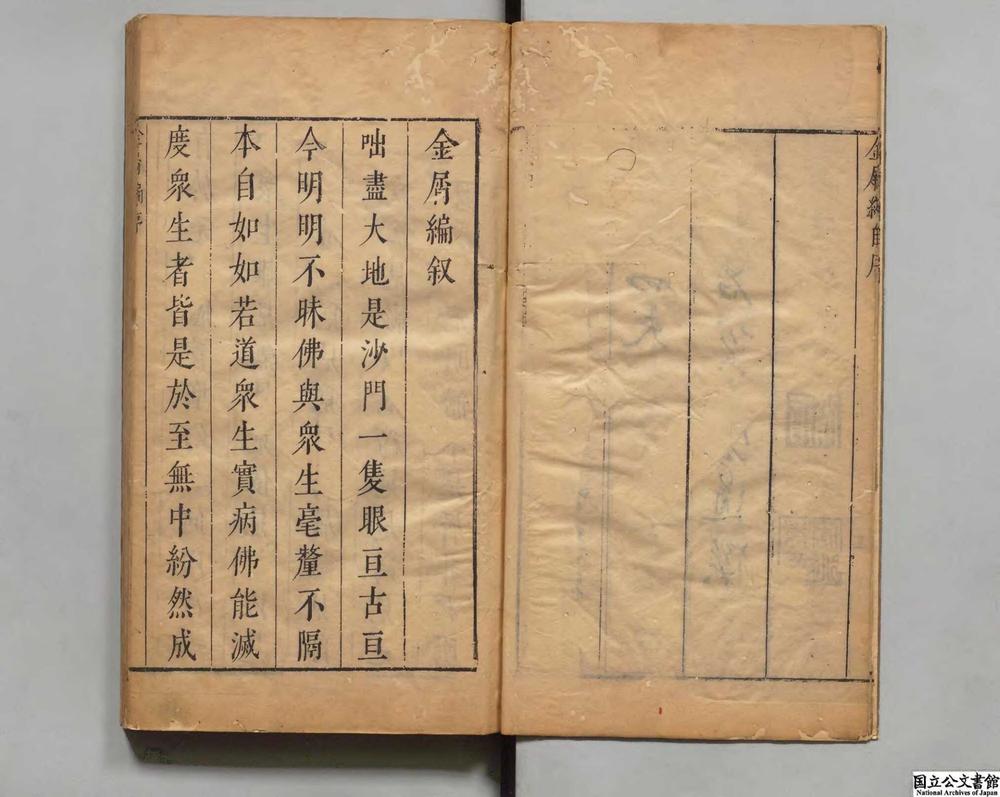 金屑編自序
金屑編叙
咄盡大地是沙門一隻眼亘古亘
今明明不昧佛與衆生毫釐不隔
本自如如若道衆生實病佛能滅
度衆生者皆是於至無中紛然成
金屑編序
国立公文書館
National Archives of Japan